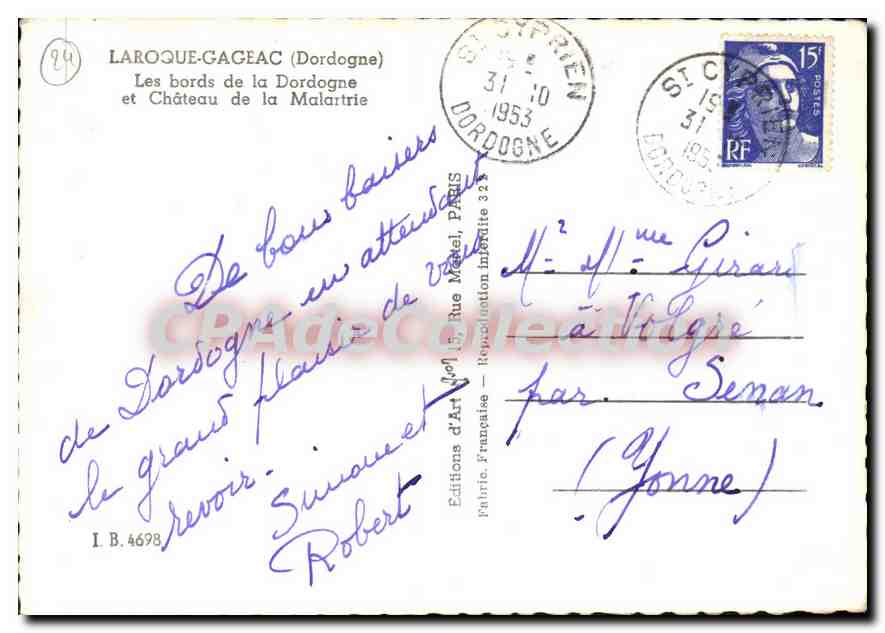 24
LAROQUE-GAGEAC (Dordogne)
Les bords de la Dordogne
et Château de la Malartrie
De bons baisers
de Dordogne en attendant
le grand plaisir de vous
revoir. Simone et
Robert
I. B. 4698
Editions d'Art Yvon 15, Rue Martel, PARIS
Fabric. Française — Reproduction interdite 322
ST CYPRIEN
31 10
1953
DORDOGNE
ST CYPRIEN
31
1953
DORDOGNE
15F
POSTES
RF
Mr Mme Girard
à Volgré
par Senan
(Yonne)
CPAdeCollection